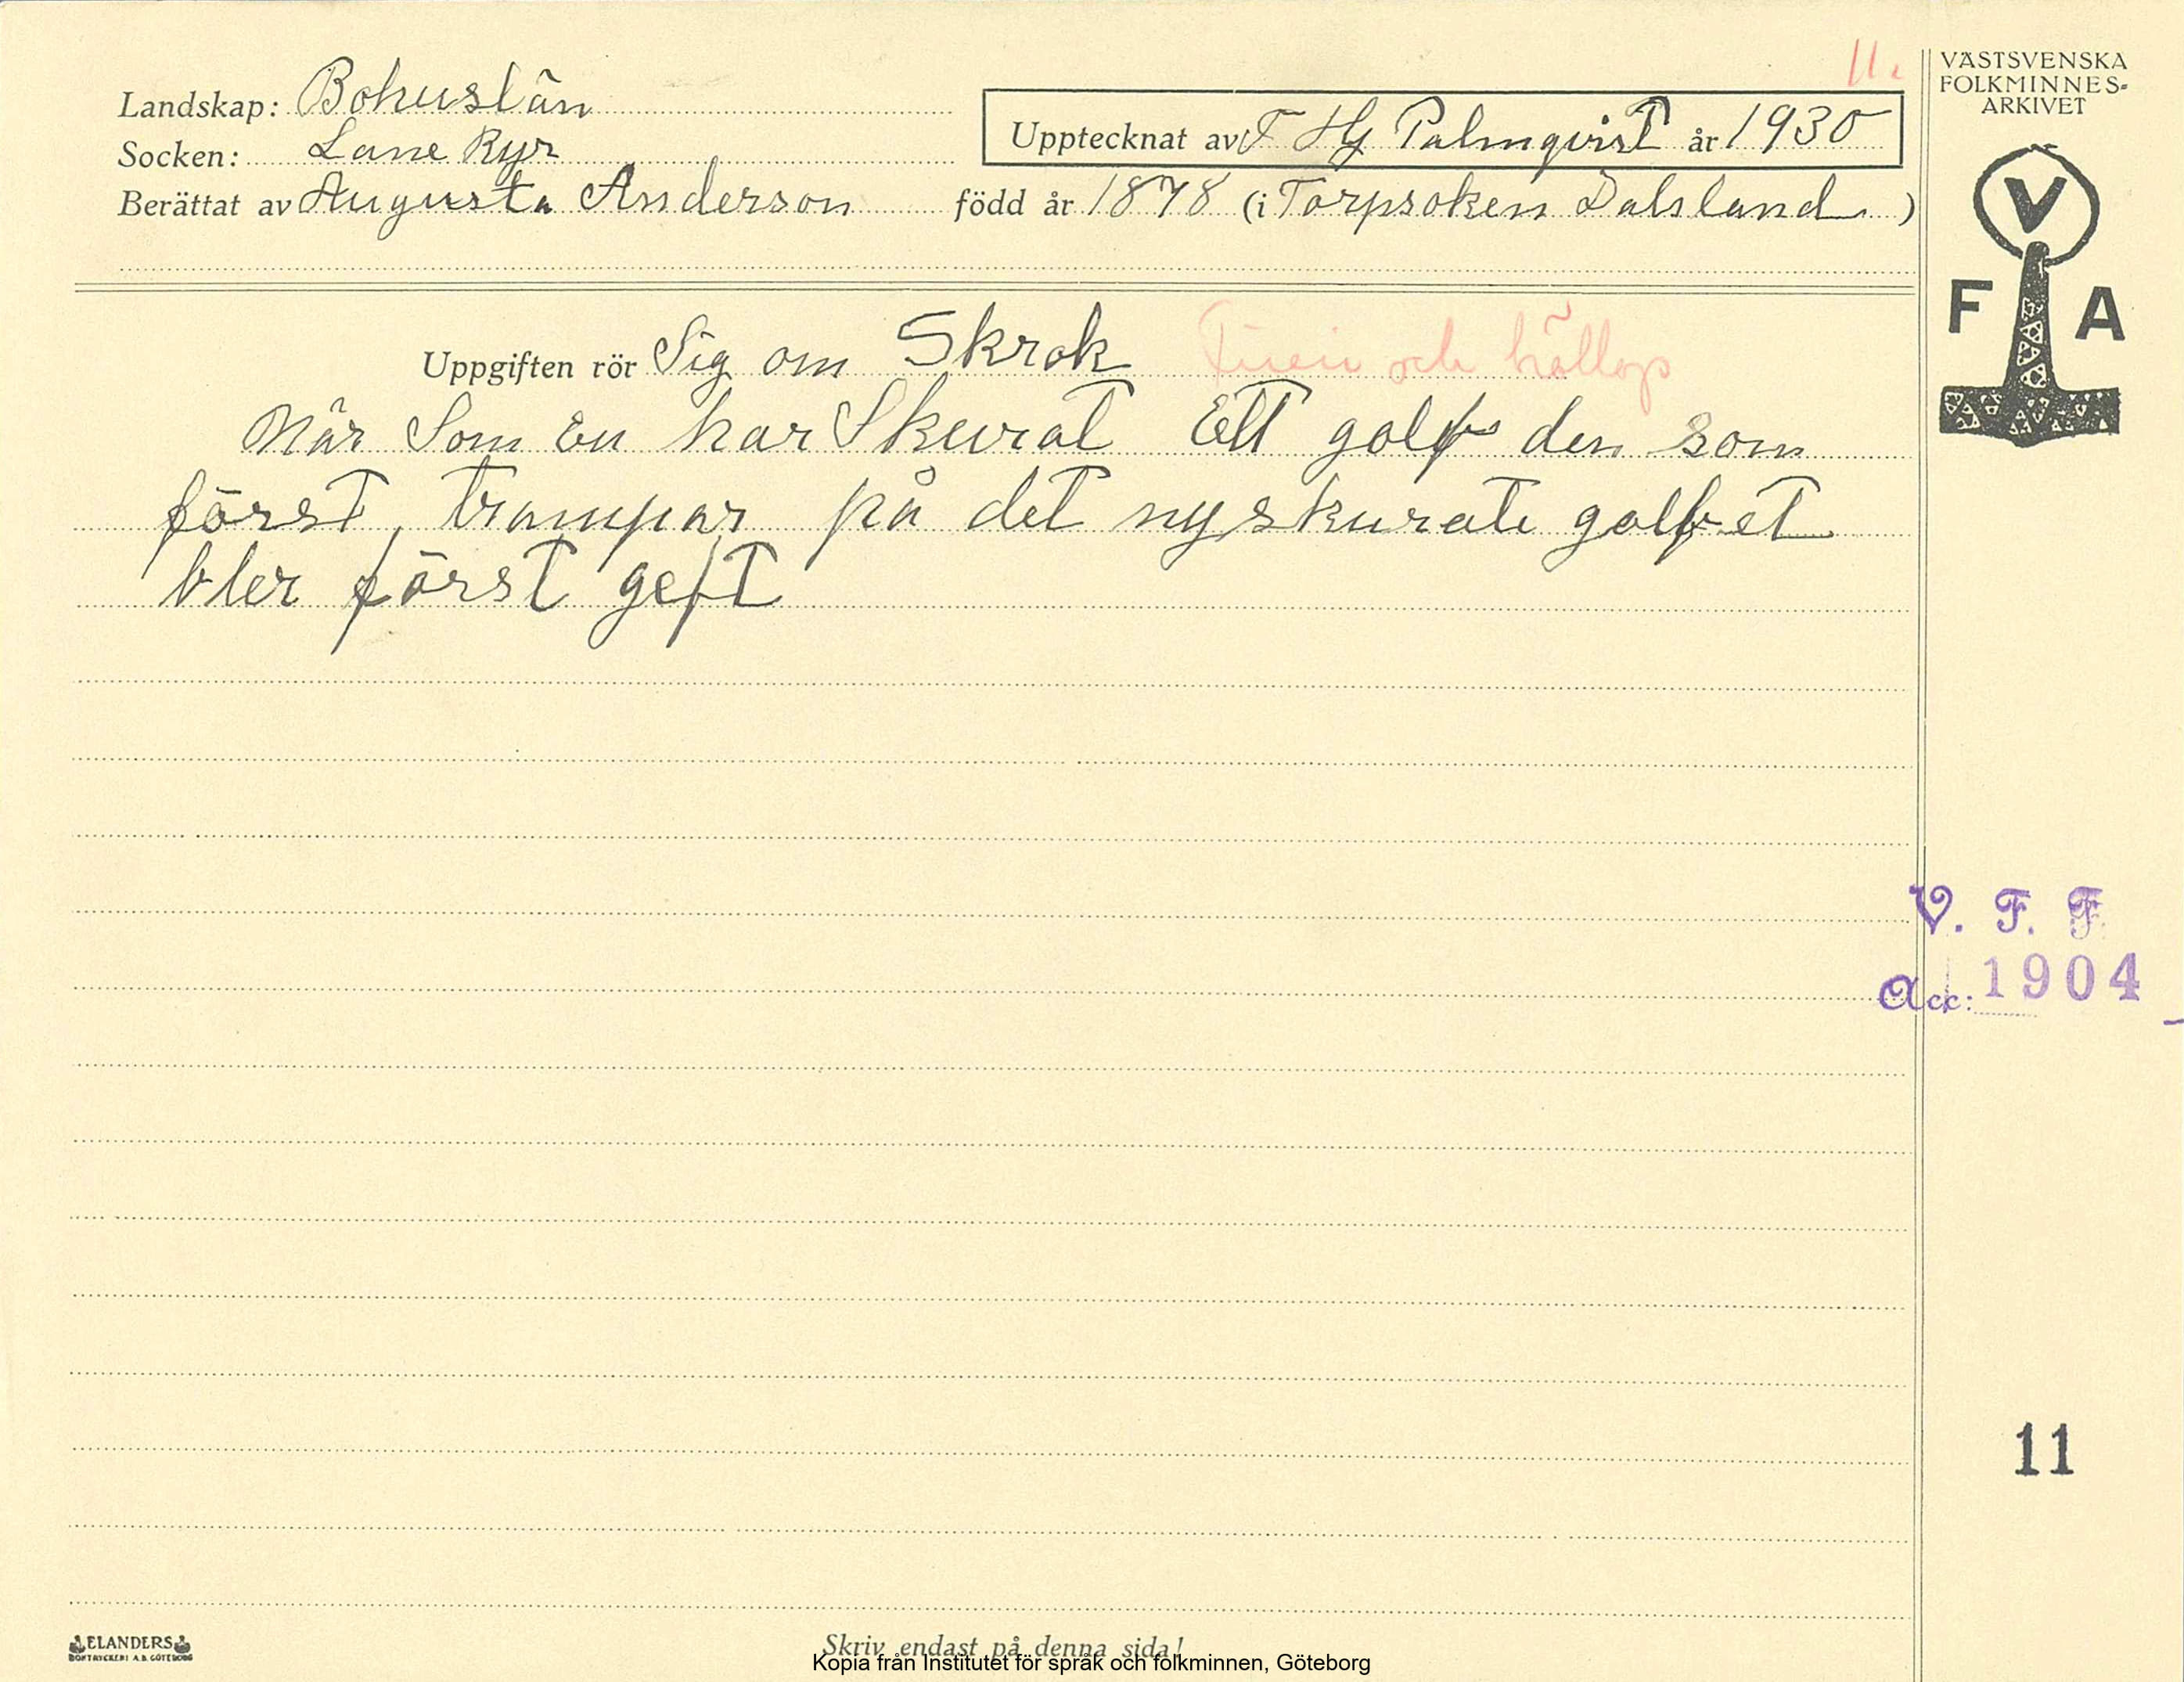 11.
VÄSTSVENSKA
FOLKMINNES-
ARKIVET
Landskap: Bohuslän
Upptecknat av F Hj Palmqvist år 1930
Socken: Lane Ryr
Berättat av Augusta Anderson född år 1878 (i Torpsoken Dalsland.)
V
F A
Uppgiften rör Sig om Skrok och
När Som En har Skurat Ett golf den som
först, trampar på det nyskurate golfvet
bler först geft
V. F. F.
Acc: 1904
11
ELANDERS
BOKTRYCKERI A.B. GÖTEBORG
Skriv endast på denna sida!
Kopia från Institutet för språk och folkminnen, Göteborg